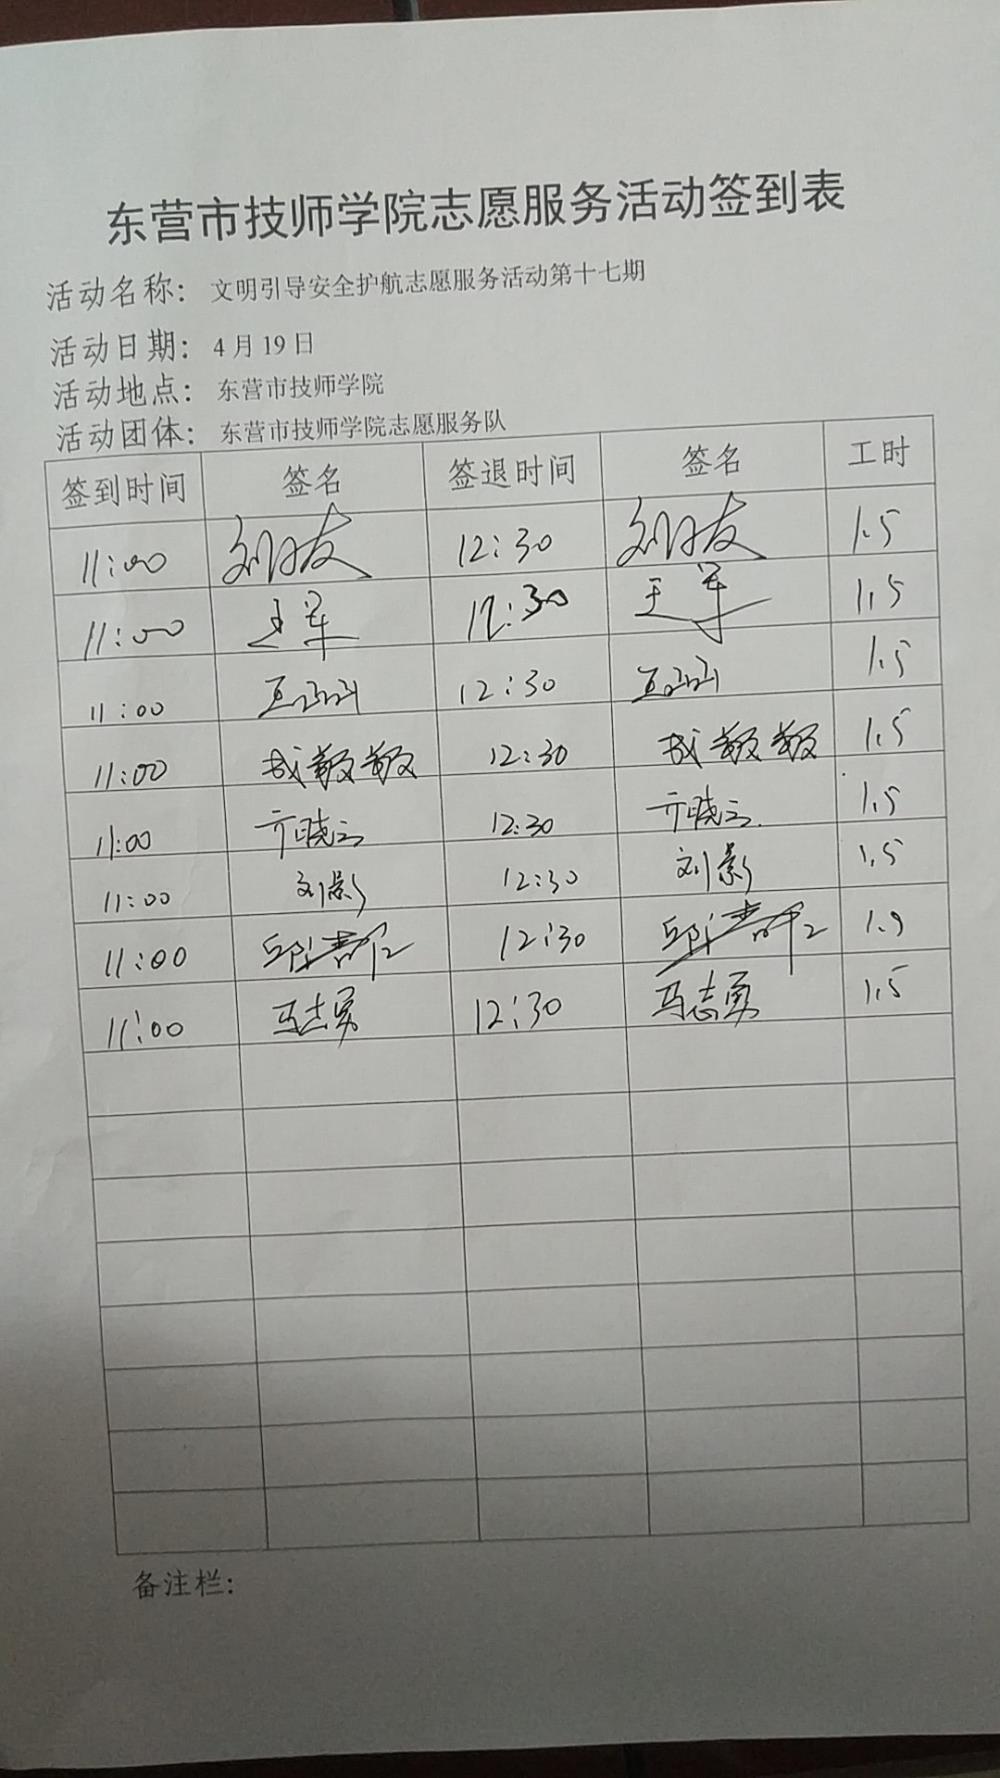 东营市技师学院志愿服务活动签到表
活动名称: 文明引导安全护航志愿服务活动第十七期
活动日期: 4月19日
活动地点: 东营市技师学院
活动团体: 东营市技师学院志愿服务队
签到时间 签名 签退时间 签名 工时
11:00 12:30 1.5
11:00 王军 12:30 王军 1.5
11:00 王函函 12:30 王函函 1.5
11:00 成敏敏 12:30 成敏敏 1.5
11:00 亓晓云 12:30 亓晓云 1.5
11:00 刘影 12:30 刘影 1.5
11:00 12:30
11:00 马志勇 12:30 马志勇 1.5
备注栏: